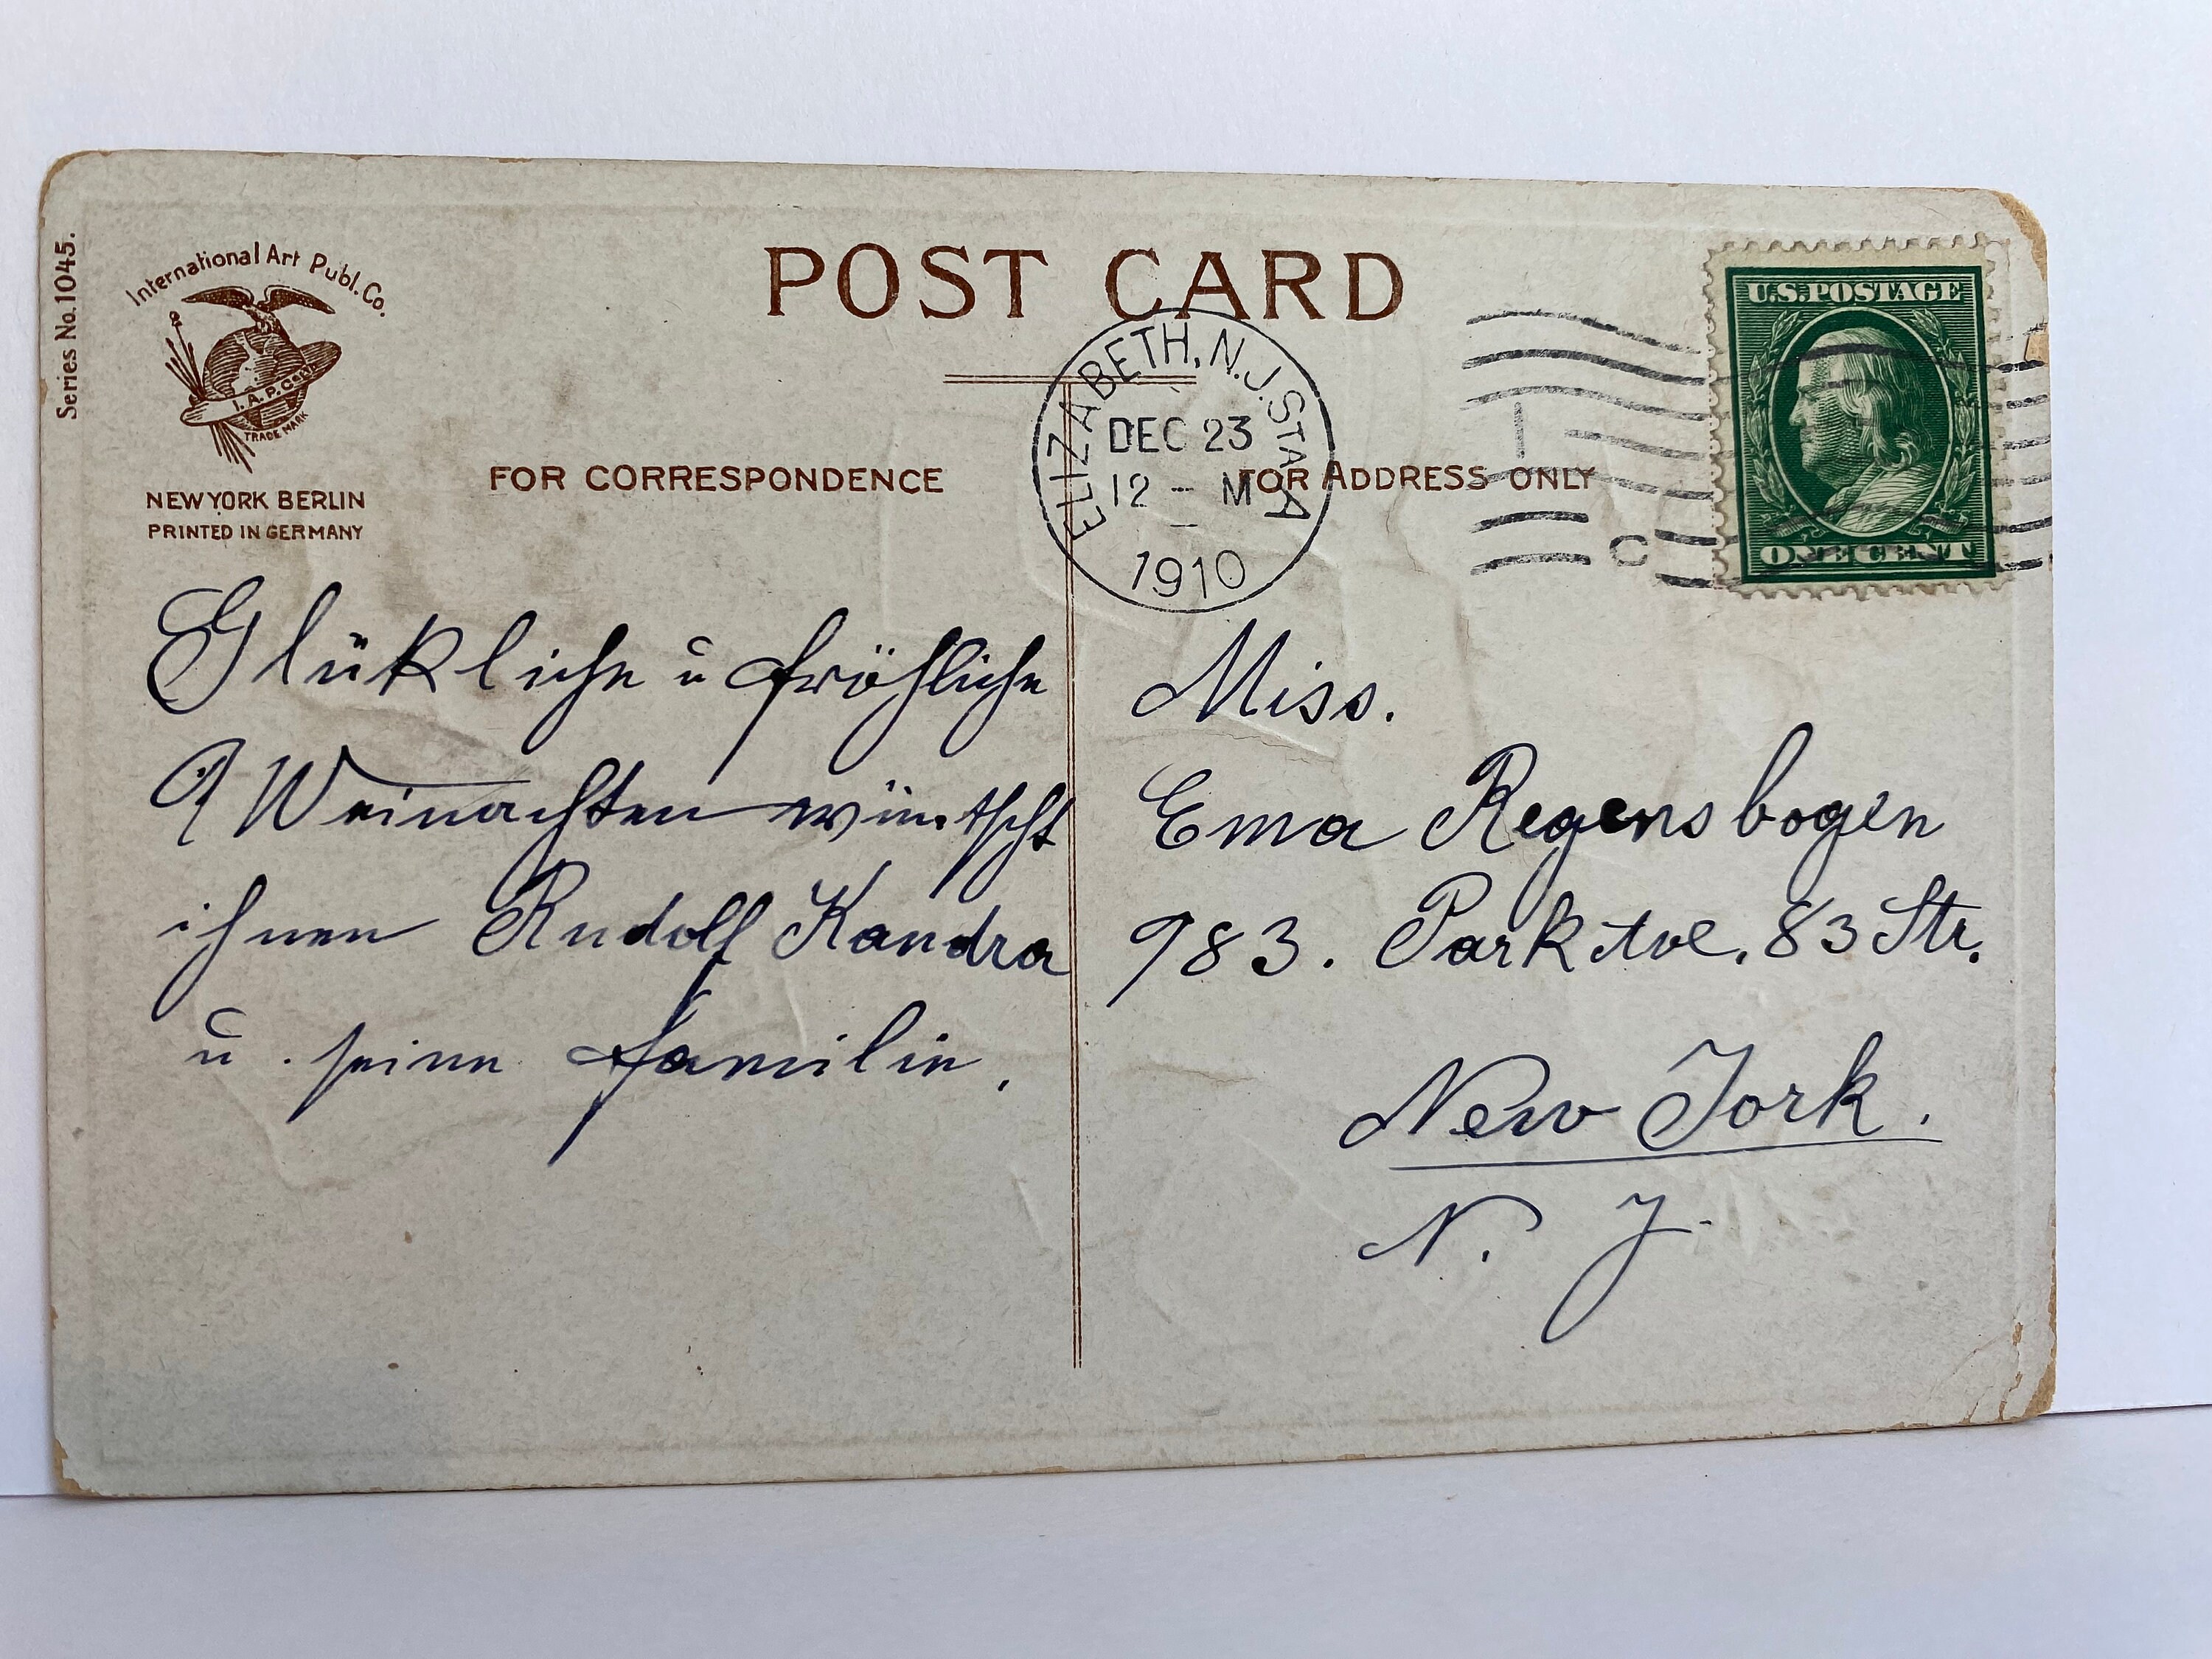 Series No. 1045.
International Art Publ. Co.
I. A. P. Co.
TRADE MARK
NEW YORK BERLIN
PRINTED IN GERMANY
POST CARD
FOR CORRESPONDENCE
FOR ADDRESS ONLY
ELIZABETH, N.J. STA. A
DEC 23
12 - M
1910
U.S. POSTAGE
ONE CENT
C
Glükliche u fröhliche
Weinachten wüntscht
ihnen Rudolf Kandra
u. seine familie.
Miss.
Ema Regensbogen
983. Park Ave. 83 Str.
New York.
N. J.